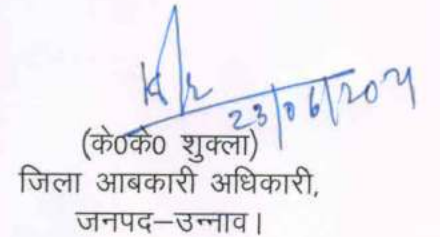 23/06/204
(के0के0 शुक्ला)
जिला आबकारी अधिकारी,
जनपद–उन्नाव।